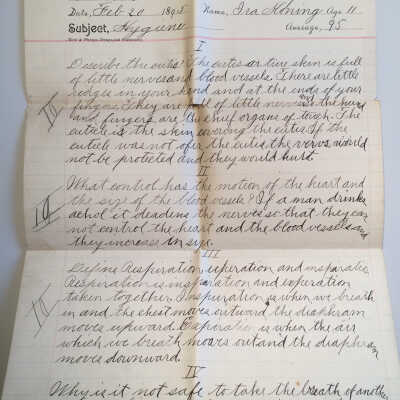 Date, Feb 20 1895 Name, Ira Köning Age 11
Subject, Hygiene Average, 95
I
Describe the cutis? The cutis or true skin is full
of little nerves and blood vessels. There are little
ridges in your hand and at the ends of your
fingers. They are full of little nerves the hand
and fingers are the chief organs of touch. The
cuticle is the skin covering the cutis. If the
cuticle was not ofer the cutis the nervs would
not be protected and they would hurt.
10
II
What control has the motion of the heart and
the size of the blood vessels? If a man drinks
achol it deadens the nerves so that they can
not control the heart and the blood vessels and
they increase in size.
10
III
Define Respiration experation and insparation
Respiration is insparation and experation
taken together. Inspuration is when we breath
in and the chest moves outward the diaphram
moves upward. Experation is when the air
which we breath moves out and the diaphram
moves downward.
10
IV
Why is it not safe to take the breath of another